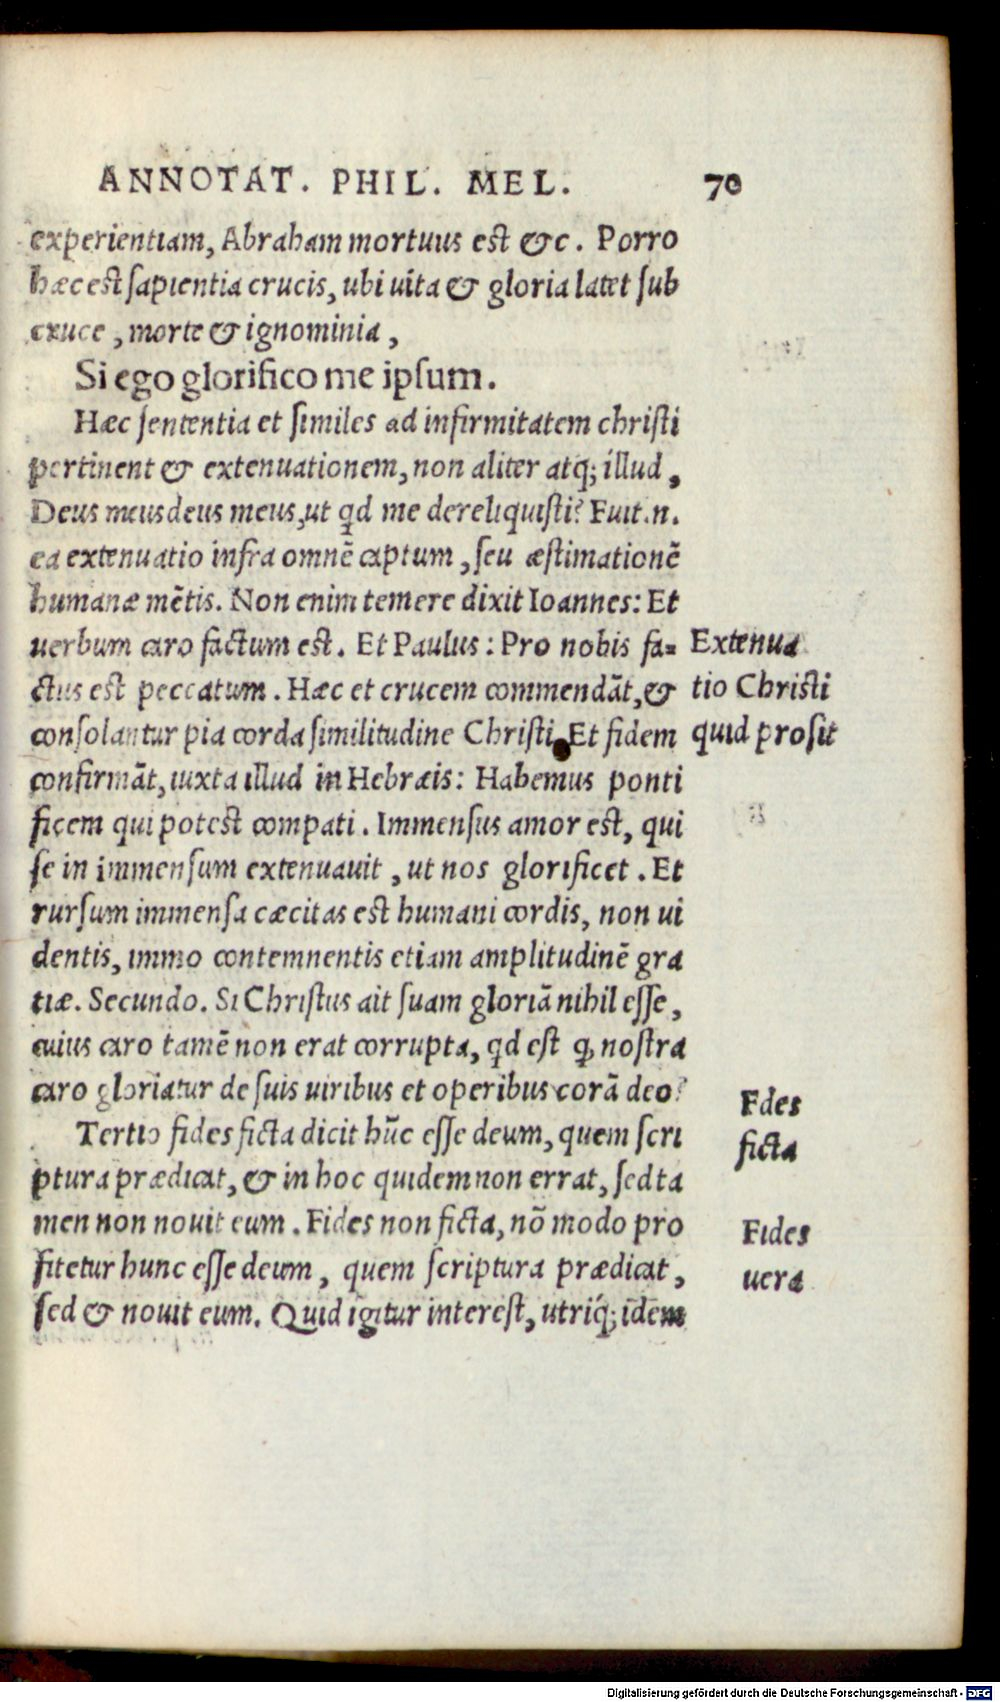 ANNOTAT. PHIL. MEL. 70
experientiam, Abraham mortuus est &c. Porro
hæc est sapientia crucis, ubi uita & gloria latet sub
cruce, morte & ignominia,
Si ego glorifico me ipsum.
Hæc sententia et similes ad infirmitatem christi
pertinent & extenuationem, non aliter atq; illud,
Deus meus deus meus, ut qd me dereliquisti? Fuit.n.
ea extenuatio infra omnē captum, seu æstimationē
humanæ mētis. Non enim temere dixit Ioannes: Et
uerbum caro factum est. Et Paulus: Pro nobis fa=
ctus est peccatum. Hæc et crucem commendāt, &
consolantur pia corda similitudine Christi. Et fidem
confirmāt, iuxta illud in Hebræis: Habemus ponti
ficem qui potest compati. Immensus amor est, qui
se in immensum extenuauit, ut nos glorificet. Et
rursum immensa cæcitas est humani cordis, non ui
dentis, immo contemnentis etiam amplitudinē gra
tiæ. Secundo. Si Christus ait suam gloriā nihil esse,
cuius caro tamē non erat corrupta, qd est ꝙ nostra
caro gloriatur de suis uiribus et operibus corā deo?
Tertio fides ficta dicit hūc esse deum, quem scri
ptura prædicat, & in hoc quidem non errat, sed ta
men non nouit eum. Fides non ficta, nō modo pro
fitetur hunc esse deum, quem scriptura prædicat,
sed & nouit eum. Quid igitur interest, utriq; idem
Extenua
tio Christi
quid prosit
Fdes
ficta
Fides
uera
Digitalisierung gefördert durch die Deutsche Forschungsgemeinschaft - DFG